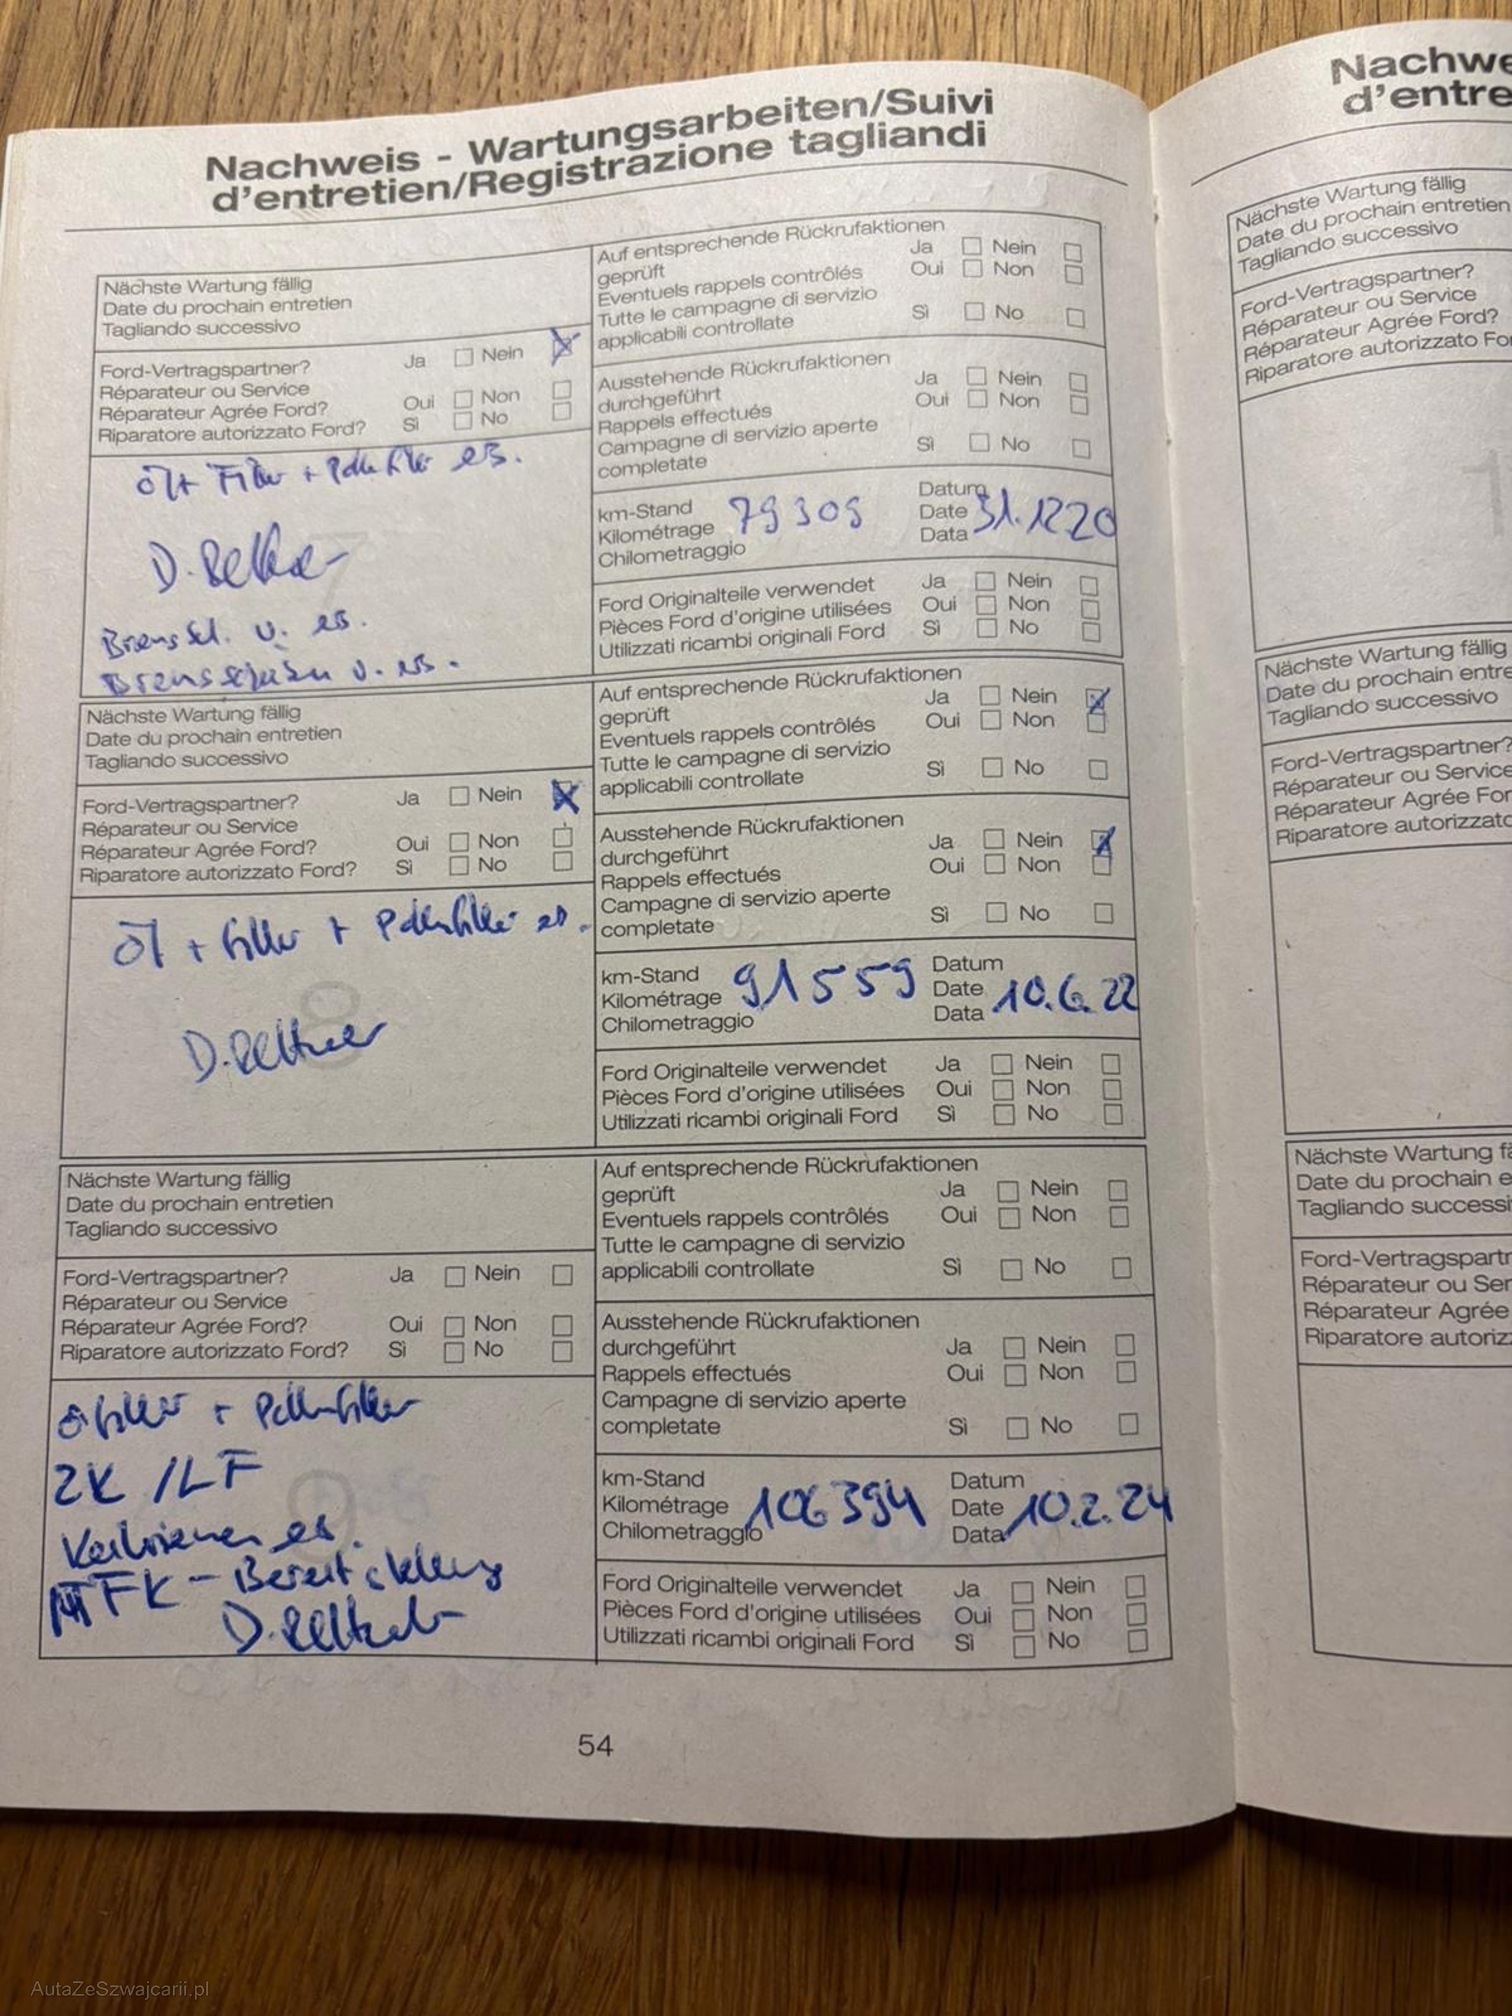 Nachweis - Wartungsarbeiten/Suivi
d'entretien/Registrazione tagliandi
Nächste Wartung fällig
Date du prochain entretien
Tagliando successivo
Ford-Vertragspartner? Ja Nein
Réparateur ou Service
Réparateur Agrée Ford? Oui Non
Riparatore autorizzato Ford? Sì No
Öl + Filter + Pollenfilter ers.
Bremssch. v. ers.
Auf entsprechende Rückrufaktionen
geprüft Ja Nein
Eventuels rappels contrôlés Oui Non
Tutte le campagne di servizio
applicabili controllate Sì No
Ausstehende Rückrufaktionen
durchgeführt Ja Nein
Rappels effectués Oui Non
Campagne di servizio aperte
completate Sì No
km-Stand Datum
Kilométrage 79309 Date 31.12.20
Chilometraggio Data
Ford Originalteile verwendet Ja Nein
Pièces Ford d'origine utilisées Oui Non
Utilizzati ricambi originali Ford Sì No
Nächste Wartung fällig
Date du prochain entretien
Tagliando successivo
Ford-Vertragspartner? Ja Nein
Réparateur ou Service
Réparateur Agrée Ford? Oui Non
Riparatore autorizzato Ford? Sì No
Öl + Filter + Pollenfilter ers.
8
Auf entsprechende Rückrufaktionen
geprüft Ja Nein
Eventuels rappels contrôlés Oui Non
Tutte le campagne di servizio
applicabili controllate Sì No
Ausstehende Rückrufaktionen
durchgeführt Ja Nein
Rappels effectués Oui Non
Campagne di servizio aperte
completate Sì No
km-Stand Datum
Kilométrage 91559 Date 10.6.22
Chilometraggio Data
Ford Originalteile verwendet Ja Nein
Pièces Ford d'origine utilisées Oui Non
Utilizzati ricambi originali Ford Sì No
Nächste Wartung fällig
Date du prochain entretien
Tagliando successivo
Ford-Vertragspartner? Ja Nein
Réparateur ou Service
Réparateur Agrée Ford? Oui Non
Riparatore autorizzato Ford? Sì No
Ölfilter + Pollenfilter
ZK / LF
Keilriemen ers.
MFK - Bereitstellung
Auf entsprechende Rückrufaktionen
geprüft Ja Nein
Eventuels rappels contrôlés Oui Non
Tutte le campagne di servizio
applicabili controllate Sì No
Ausstehende Rückrufaktionen
durchgeführt Ja Nein
Rappels effectués Oui Non
Campagne di servizio aperte
completate Sì No
km-Stand Datum
Kilométrage 106394 Date 10.2.24
Chilometraggio Data
Ford Originalteile verwendet Ja Nein
Pièces Ford d'origine utilisées Oui Non
Utilizzati ricambi originali Ford Sì No
54
d'entre
Nächste Wartung fällig
Date du prochain entretien
Tagliando successivo
Ford-Vertragspartner?
Réparateur ou Service
Réparateur Agrée Ford?
Riparatore autorizzato Fo
Nächste Wartung fällig
Date du prochain entre
Tagliando successivo
Ford-Vertragspartner?
Réparateur ou Service
Réparateur Agrée For
Riparatore autorizzato
Nächste Wartung fä
Date du prochain e
Tagliando successi
Ford-Vertragspartr
Réparateur ou Ser
Réparateur Agrée
Riparatore autoriz
AutaZeSzwajcarii.pl